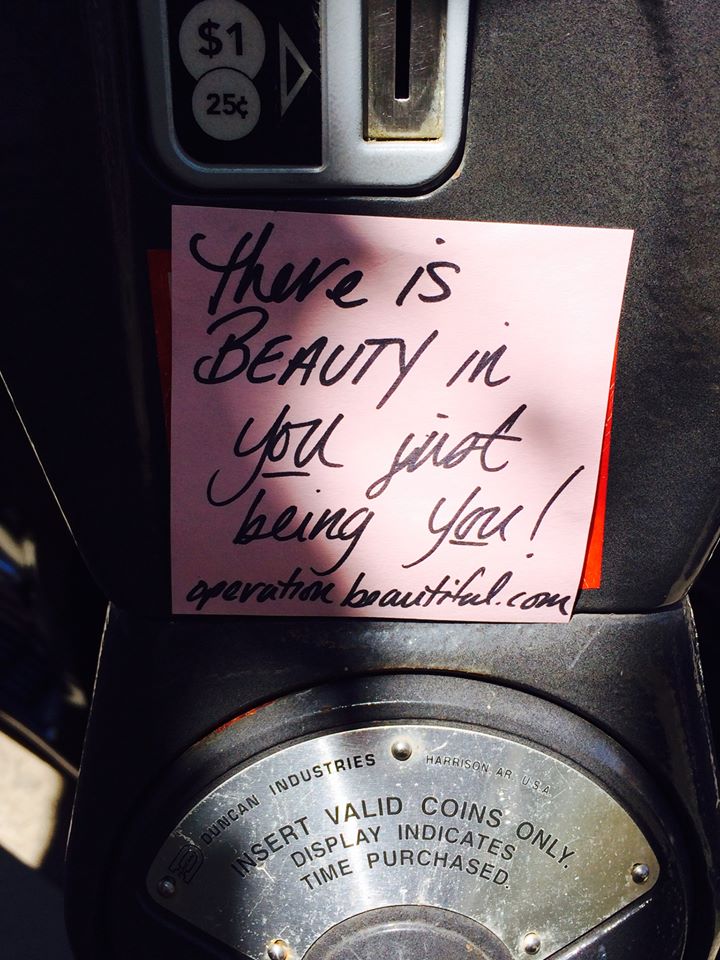 $1
25¢
There is
BEAUTY in
you just
being you!
operationbeautiful.com
DUNCAN INDUSTRIES HARRISON, AR. U.S.A.
INSERT VALID COINS ONLY.
DISPLAY INDICATES
TIME PURCHASED.